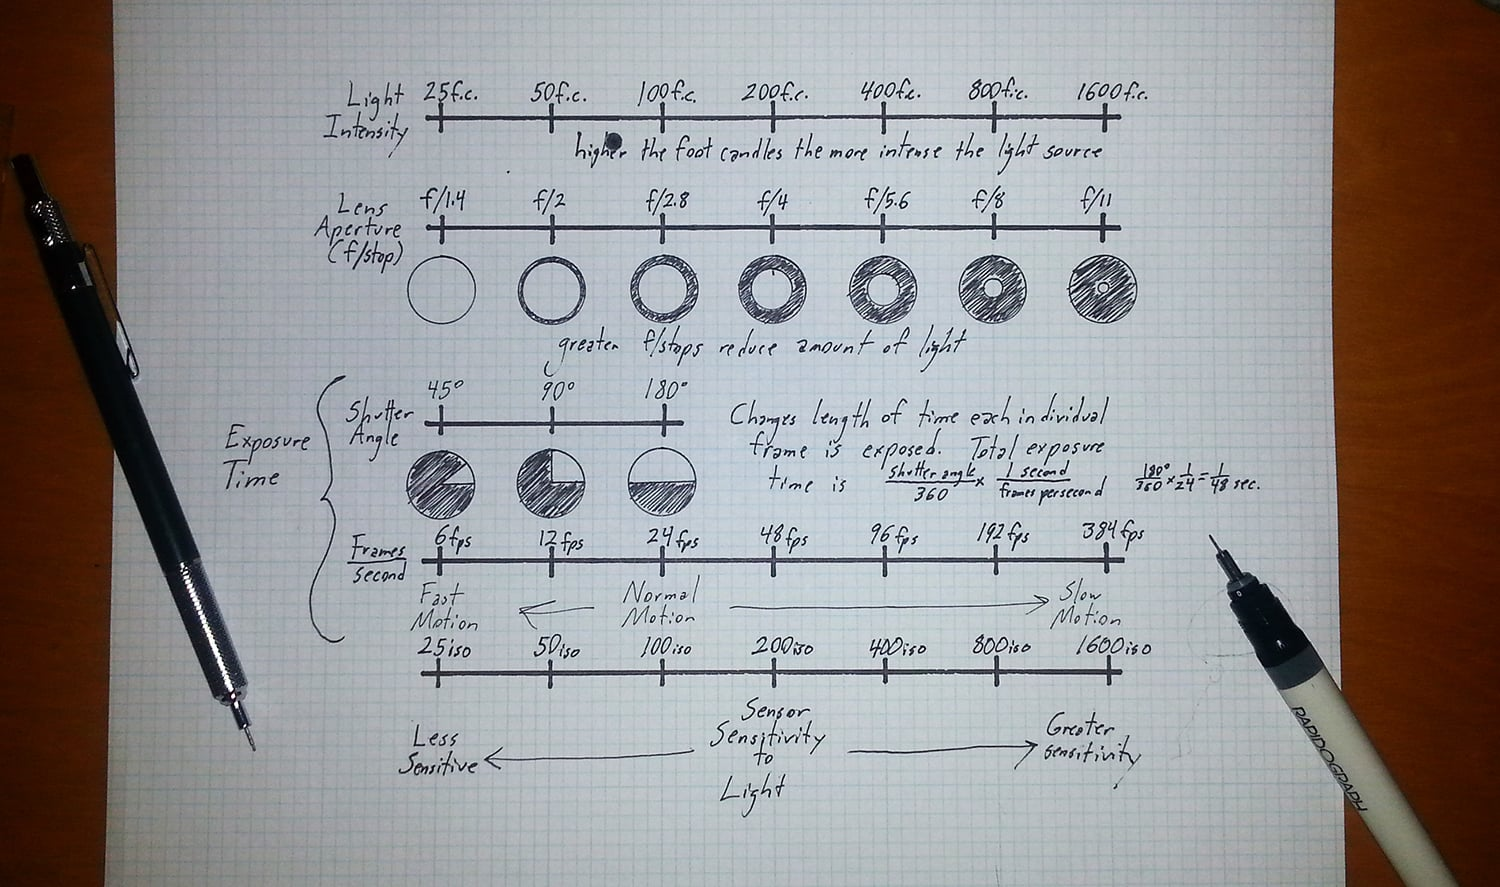 Light Intensity
25f.c. 50f.c. 100f.c. 200f.c. 400f.c. 800f.c. 1600f.c.
higher the foot candles the more intense the light source
Lens
Aperture
(f/stop)
f/1.4 f/2 f/2.8 f/4 f/5.6 f/8 f/11
greater f/stops reduce amount of light
Exposure
Time
Shutter
Angle
45° 90° 180°
Changes length of time each individual
frame is exposed. Total exposure
time is shutter angle/360 x 1 second/frames per second
180°/360 x 1/24 = 1/48 sec.
Frames/second
6fps 12fps 24fps 48fps 96fps 192fps 384fps
Fast
Motion
Normal
Motion
Slow
Motion
25iso 50iso 100iso 200iso 400iso 800iso 1600iso
Less
Sensitive
Sensor
Sensitivity
to
Light
Greater
Sensitivity
RAPIDOGRAPH